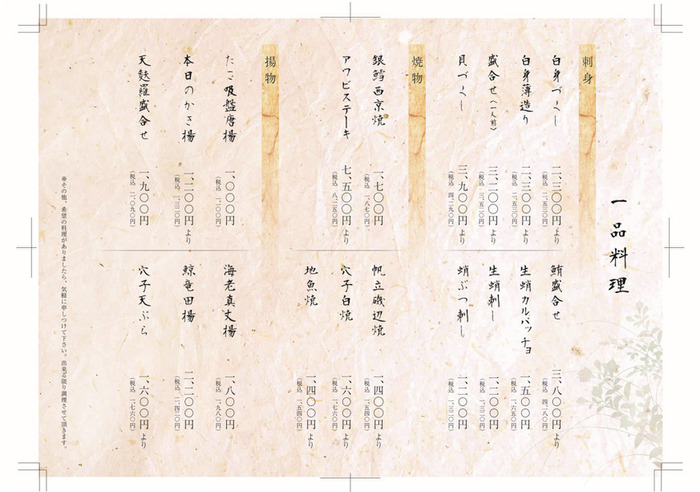 一品料理
刺身
白身づくし
二、三〇〇円より
(税込 二、五三〇円)
白身薄造り
二、三〇〇円
(税込 二、五三〇円)
盛合せ(一人前)
三、二〇〇円より
(税込 三、五二〇円)
貝づくし
三、九〇〇円
(税込 四、二九〇円)
鮪盛合せ
三、八〇〇円
(税込 四、一八〇円)
生蛸カルパッチョ
一、五〇〇円
(税込 一、六五〇円)
生蛸刺し
一、二〇〇円
(税込 一、三二〇円)
蛸ぶつ刺し
一、二〇〇円
(税込 一、三二〇円)
焼物
銀鱈西京焼
一、七〇〇円
(税込 一、八七〇円)
アワビステーキ
七、五〇〇円より
(税込 八、二五〇円)
帆立磯辺焼
一、四〇〇円
(税込 一、五四〇円)
穴子白焼
一、六〇〇円より
(税込 一、七六〇円)
地魚焼
一、四〇〇円より
(税込 一、五四〇円)
揚物
たこ吸盤唐揚
一、〇〇〇円
(税込 一、一〇〇円)
本日のかき揚
一、二〇〇円より
(税込 一、三二〇円)
天麩羅盛合せ
一、九〇〇円
(税込 二、〇九〇円)
海老真丈揚
一、八〇〇円
(税込 一、九八〇円)
鯨竜田揚
二、二〇〇円
(税込 二、四二〇円)
穴子天ぷら
一、六〇〇円より
(税込 一、七六〇円)
※その他、希望の料理がありましたら、気軽に申しつけて下さい。出来る限り調理させて頂きます。